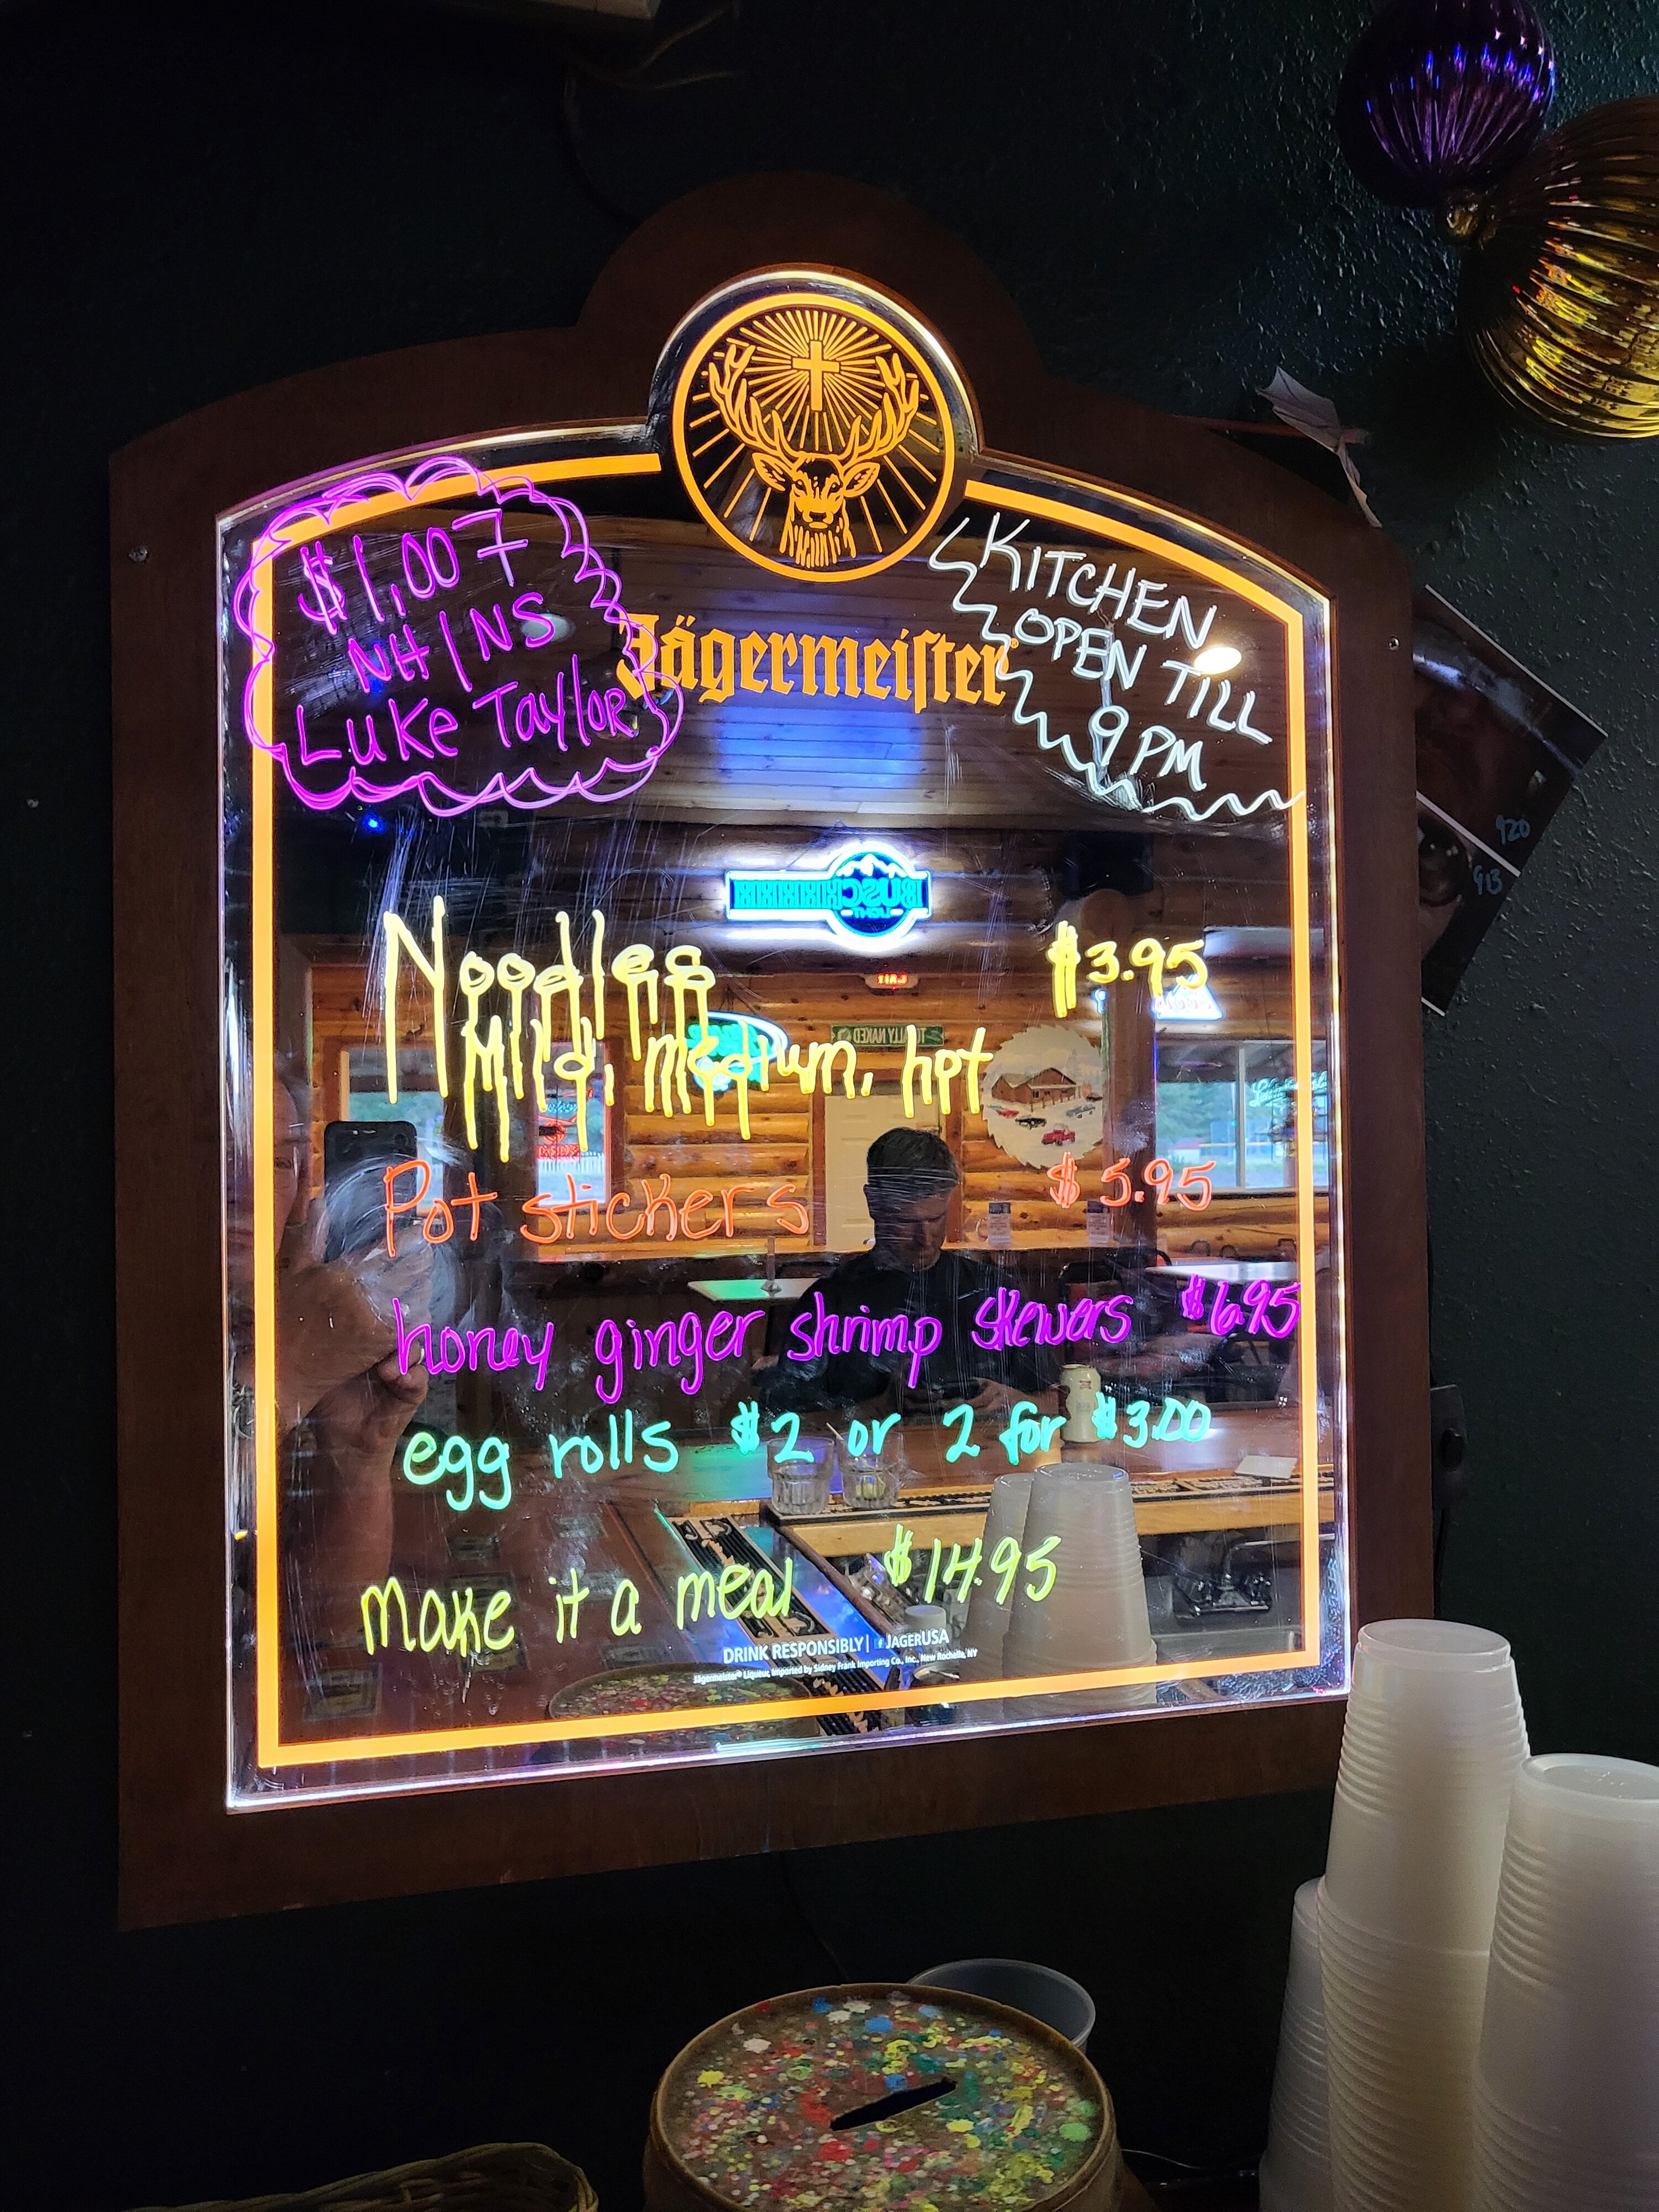 $1,007
NH/NS
Luke Taylor
Jägermeiſter
KITCHEN
OPEN TILL
9 PM
BUSCH
LIGHT
Noodles $3.95
Mild, medium, hot
TOTALLY NAKED
Pot stickers $5.95
honey ginger shrimp skewers $6.95
egg rolls $2 or 2 for $3.00
make it a meal $14.95
DRINK RESPONSIBLY | f JAGERUSA
Jägermeister® Liqueur, Imported by Sidney Frank Importing Co., Inc., New Rochelle, NY
920
913